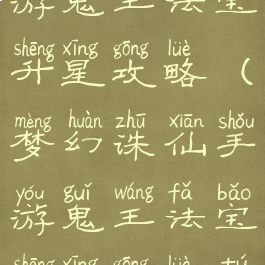 游鬼王法宝
shēng xīng gōng lüè
升星攻略（
mèng huàn zhū xiān shǒu
梦幻诛仙手
yóu guǐ wáng fǎ bǎo
游鬼王法宝
shēng xīng gōng lüè